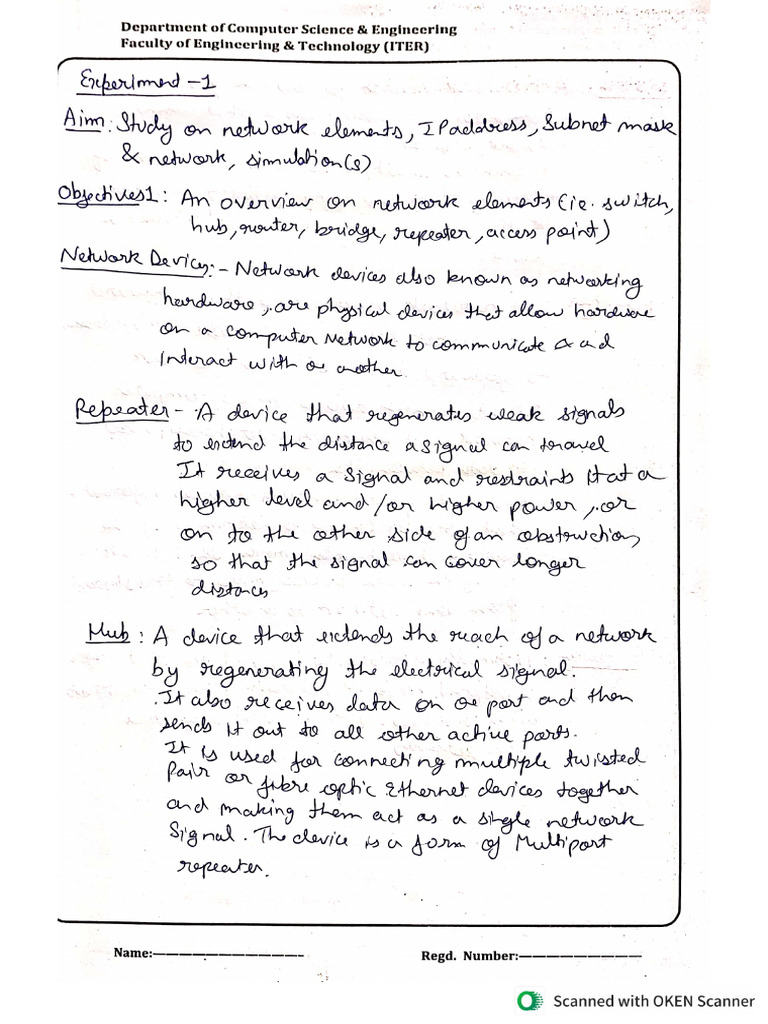 Department of Computer Science & Engineering
Faculty of Engineering & Technology (ITER)
Experiment -1
Aim: Study on network elements, IP address, Subnet mask
& network, simulation(s)
Objectives1: An overview on network elements (ie. switch,
hub, router, bridge, repeater, access point)
Network Devices:- Network devices also known as networking
hardware, are physical devices that allow hardware
on a computer Network to communicate & and
Interact with one another.
Repeater - A device that regenerates weak signals
to extend the distance a signal can travel
It receives a signal and restraints it at a
higher level and/or higher power, or
on to the other side of an obstruction,
so that the signal can cover longer
distances
Hub: A device that extends the reach of a network
by regenerating the electrical signal.
It also receives data on one port and then
sends it out to all other active ports.
It is used for connecting multiple twisted
Pair or fibre optic Ethernet devices together
and making them act as a single network
Signal. The device is a form of Multiport
repeater.
Name:-
Regd. Number:-
Scanned with OKEN Scanner